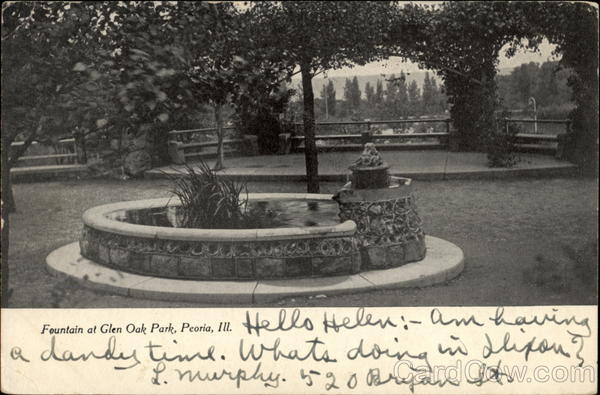 Fountain at Glen Oak Park, Peoria, Ill.
Hello Helen:- Am having
a dandy time. Whats doing in Dixon?
L. Murphy. 520 Bryan St.
CardCow.com